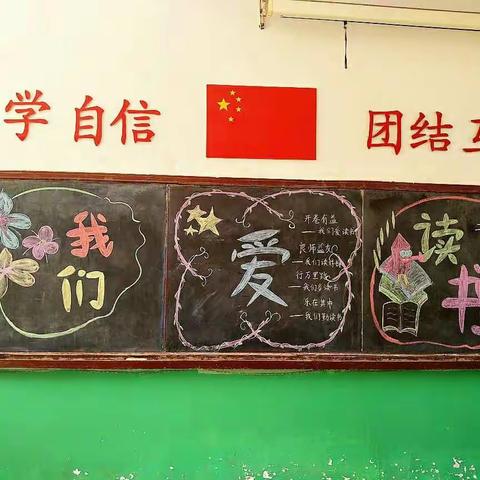 学 自信 团结
我们
爱
开卷有益
——我们爱读书
良师益友
——我们读好书
行万里路
——我们多读书
乐在其中
——我们勤读书
读书